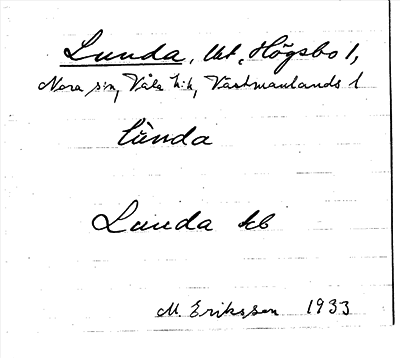 Lunda, Ut, Högsbo 1,
Nora sn, Våla hd, Västmanlands l
lùnda
Lunda kb
M. Eriksson 1933